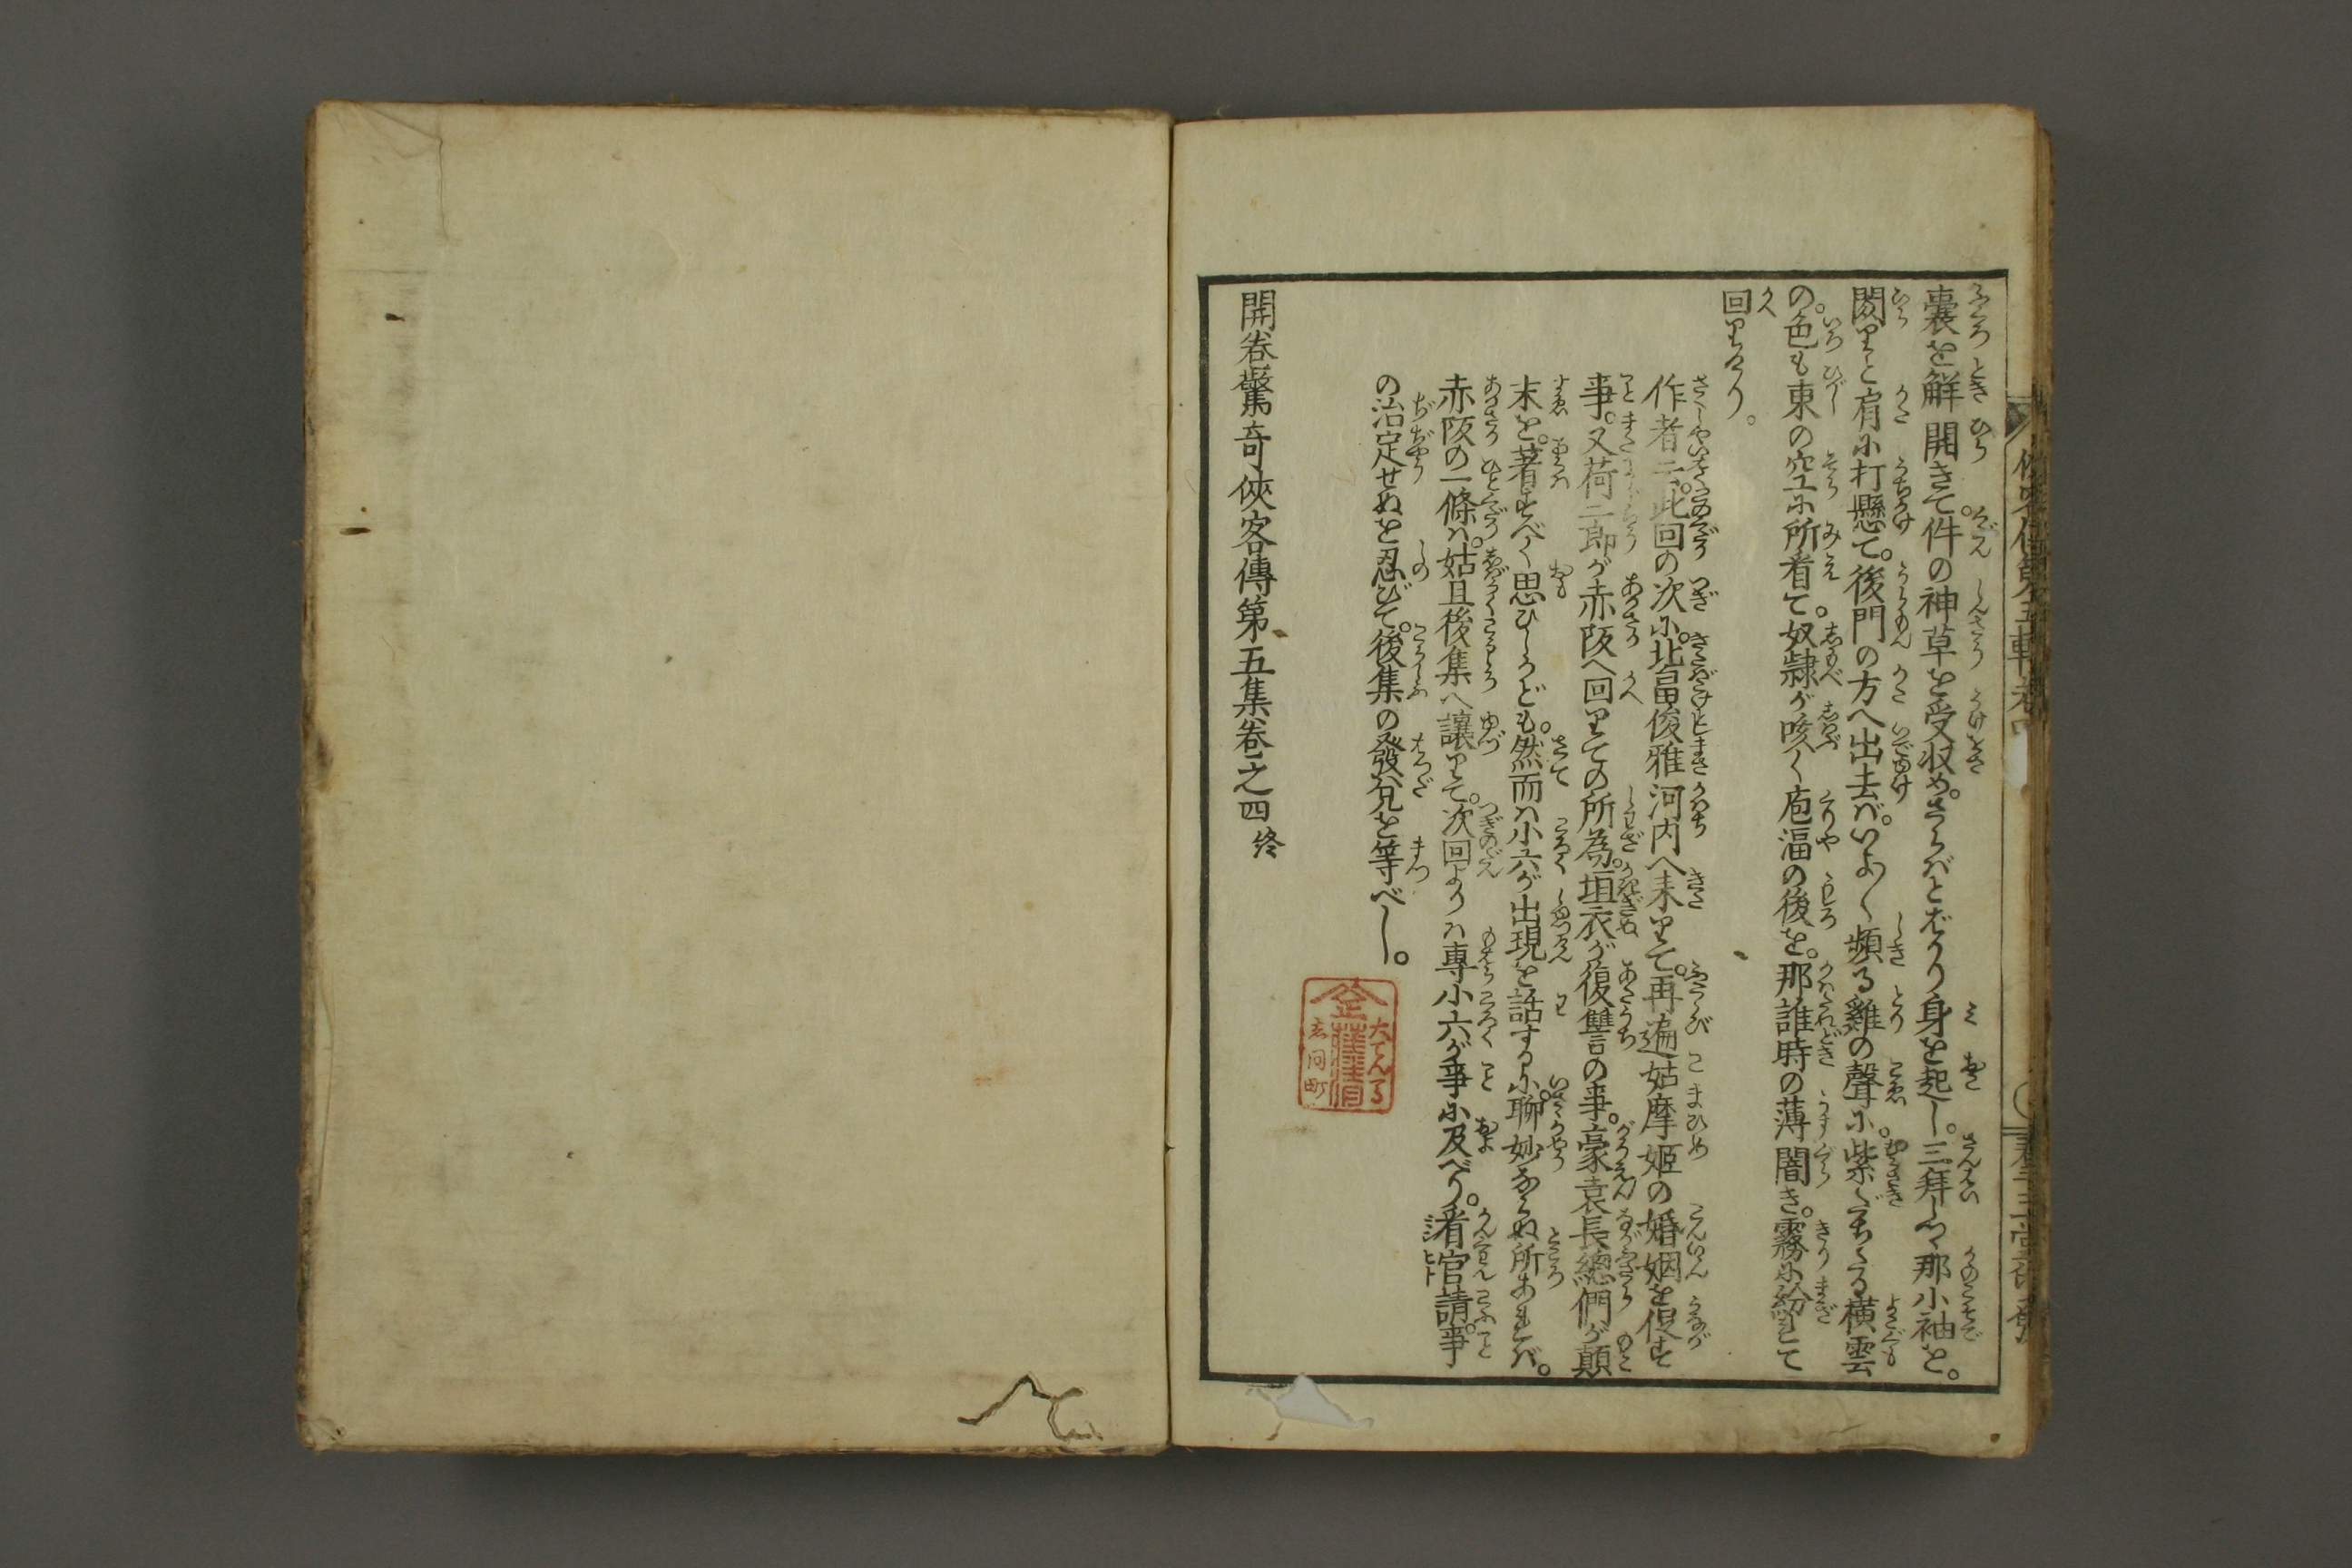 嚢を解開きて。件の神草を受収め。さらばとばかり身を起し。三拜しつゝ那小袖を。
閃りと肩に打懸て。後門の方へ出去ば。いよ〳〵頻る雞の聲に。紫だちたる横雲
の。色も東の空に所看て。奴隷が咳く庖湢の後を。那誰時の薄闇き。霧に紛れて
回りけり。
作者云。此回の次に。北畠俊雅河内へ来りて。再遍姑摩姫の婚姻を促す
事。又荷二郎が赤阪へ回りての所為。垣衣が復讐の事。豪袁長總們が顛
末を。著すべく思ひしかども。然而ハ小六が出現を話するに。聊妙ならぬ所あれバ。
赤阪の一條ハ。姑且後集へ讓りて。次回よりハ專小六が事に及べり。看官請。事
の治定せぬを忍びて。後集の發兌を等べし。
開卷驚奇俠客傳第五集卷之四 終